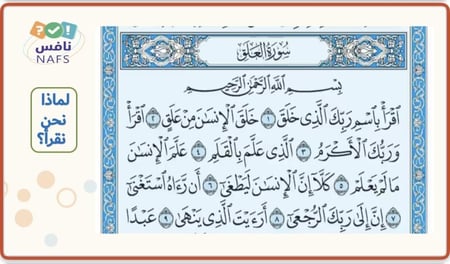 نافس
NAFS
لماذا
نحن
نقرأ؟
سُورَةُ العَلَقِ
بِسْمِ اللَّهِ الرَّحْمَٰنِ الرَّحِيمِ
اقْرَأْ بِاسْمِ رَبِّكَ الَّذِي خَلَقَ ١ خَلَقَ الْإِنسَانَ مِنْ عَلَقٍ ٢ اقْرَأْ
وَرَبُّكَ الْأَكْرَمُ ٣ الَّذِي عَلَّمَ بِالْقَلَمِ ٤ عَلَّمَ الْإِنسَانَ
مَا لَمْ يَعْلَمْ ٥ كَلَّا إِنَّ الْإِنسَانَ لَيَطْغَىٰ ٦ أَن رَّءَاهُ اسْتَغْنَىٰ
٧ إِنَّ إِلَىٰ رَبِّكَ الرُّجْعَىٰ ٨ أَرَءَيْتَ الَّذِي يَنْهَىٰ ٩ عَبْدًا